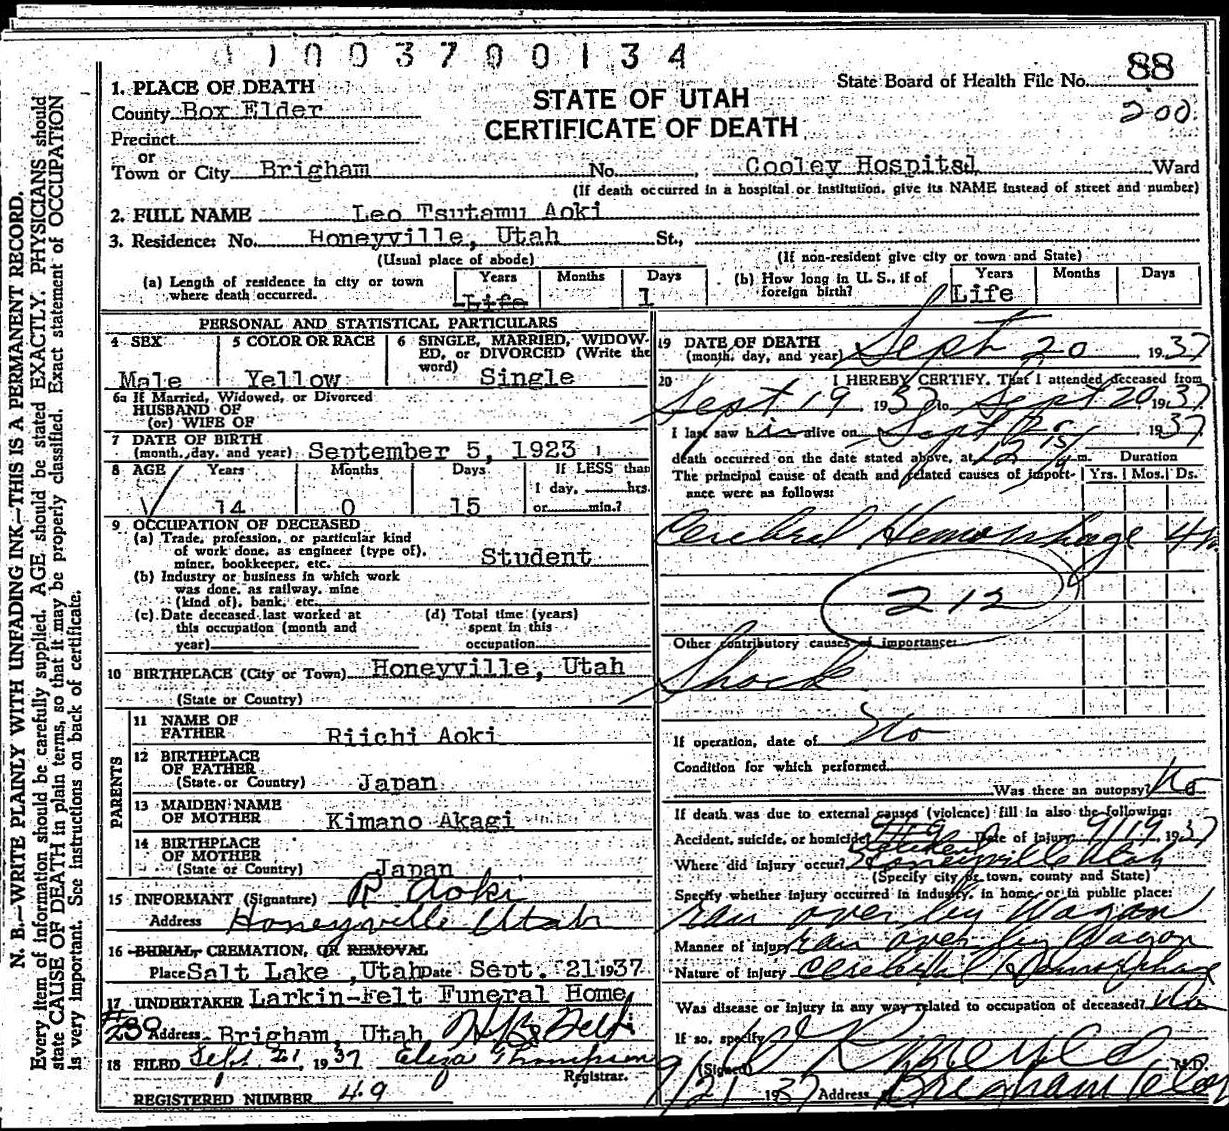 0 1 0 0 3 7 0 0 1 3 4
State Board of Health File No. 88
STATE OF UTAH
CERTIFICATE OF DEATH
200
1. PLACE OF DEATH
County Box Elder
Precinct
or
Town or City Brigham No. Cooley Hospital Ward
(If death occurred in a hospital or institution, give its NAME instead of street and number)
2. FULL NAME Leo Tsutamu Aoki
3. Residence: No. Honeyville, Utah St.,
(Usual place of abode) (If non-resident give city or town and State)
(a) Length of residence in city or town where death occurred. Years Life Months Days 1
(b) How long in U. S., if of foreign birth? Years Life Months Days
PERSONAL AND STATISTICAL PARTICULARS
4 SEX Male
5 COLOR OR RACE Yellow
6 SINGLE, MARRIED, WIDOWED, or DIVORCED (Write the word) Single
6a If Married, Widowed, or Divorced
HUSBAND OF
(or) WIFE OF
7 DATE OF BIRTH
(month, day, and year) September 5, 1923
8 AGE Years 14 Months 0 Days 15 If LESS than
1 day, hrs.
or min.?
9 OCCUPATION OF DECEASED
(a) Trade, profession, or particular kind
of work done, as engineer (type of),
miner, bookkeeper, etc. Student
(b) Industry or business in which work
was done, as railway, mine
(kind of), bank, etc.
(c) Date deceased last worked at
this occupation (month and
year)
(d) Total time (years)
spent in this
occupation
10 BIRTHPLACE (City or Town) Honeyville, Utah
(State or Country)
PARENTS
11 NAME OF
FATHER Riichi Aoki
12 BIRTHPLACE
OF FATHER
(State or Country) Japan
13 MAIDEN NAME
OF MOTHER Kimano Akagi
14 BIRTHPLACE
OF MOTHER
(State or Country) Japan
15 INFORMANT (Signature) R Aoki
Address Honeyville Utah
16 BURIAL, CREMATION, OR REMOVAL
Place Salt Lake, Utah Date Sept. 21 1937
17 UNDERTAKER Larkin-Felt Funeral Home
# 230 Address Brigham, Utah
18 FILED Sept. 21, 1937 Eliza Thompson
Registrar.
REGISTERED NUMBER 49
19 DATE OF DEATH
(month, day, and year) Sept 20 1937
20 I HEREBY CERTIFY, That I attended deceased from
Sept 19 1937 to Sept 20, 1937
I last saw him alive on Sept 1937
death occurred on the date stated above, at m. Duration
The principal cause of death and related causes of importance were as follows: Yrs. Mos. Ds.
Cerebral Hemorrhage
212
Other contributory causes of importance:
Shock
If operation, date of No
Condition for which performed
Was there an autopsy? No
If death was due to external causes (violence) fill in also the following:
Accident, suicide, or homicide? Accident Date of injury 9/19 1937
Where did injury occur? Honeyville Utah
(Specify city or town, county and State)
Specify whether injury occurred in industry, in home, or in public place:
ran over by Wagon
Manner of injury ran over by Wagon
Nature of injury Cerebral Hemorrhage
Was disease or injury in any way related to occupation of deceased? No
If so, specify
(Signed) M.D.
9/21 1937 Address Brigham
N. B.—WRITE PLAINLY WITH UNFADING INK—THIS IS A PERMANENT RECORD.
Every item of information should be carefully supplied. AGE should be stated EXACTLY. PHYSICIANS should
state CAUSE OF DEATH in plain terms, so that it may be properly classified. Exact statement of OCCUPATION
is very important. See instructions on back of certificate.